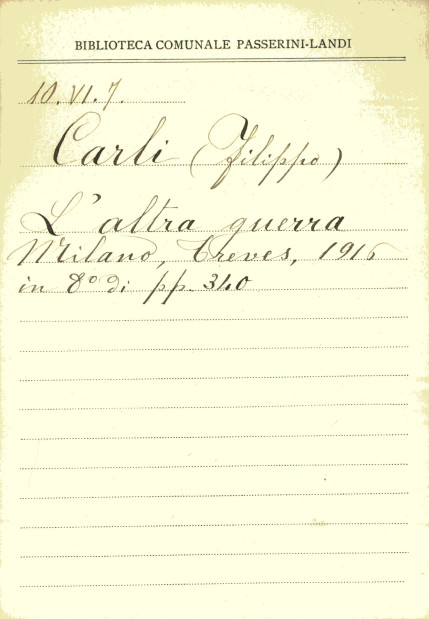 BIBLIOTECA COMUNALE PASSERINI-LANDI
10.VI.7.
Carli (Filippo)
L'altra guerra
Milano, Treves, 1916
in 8° di pp. 340